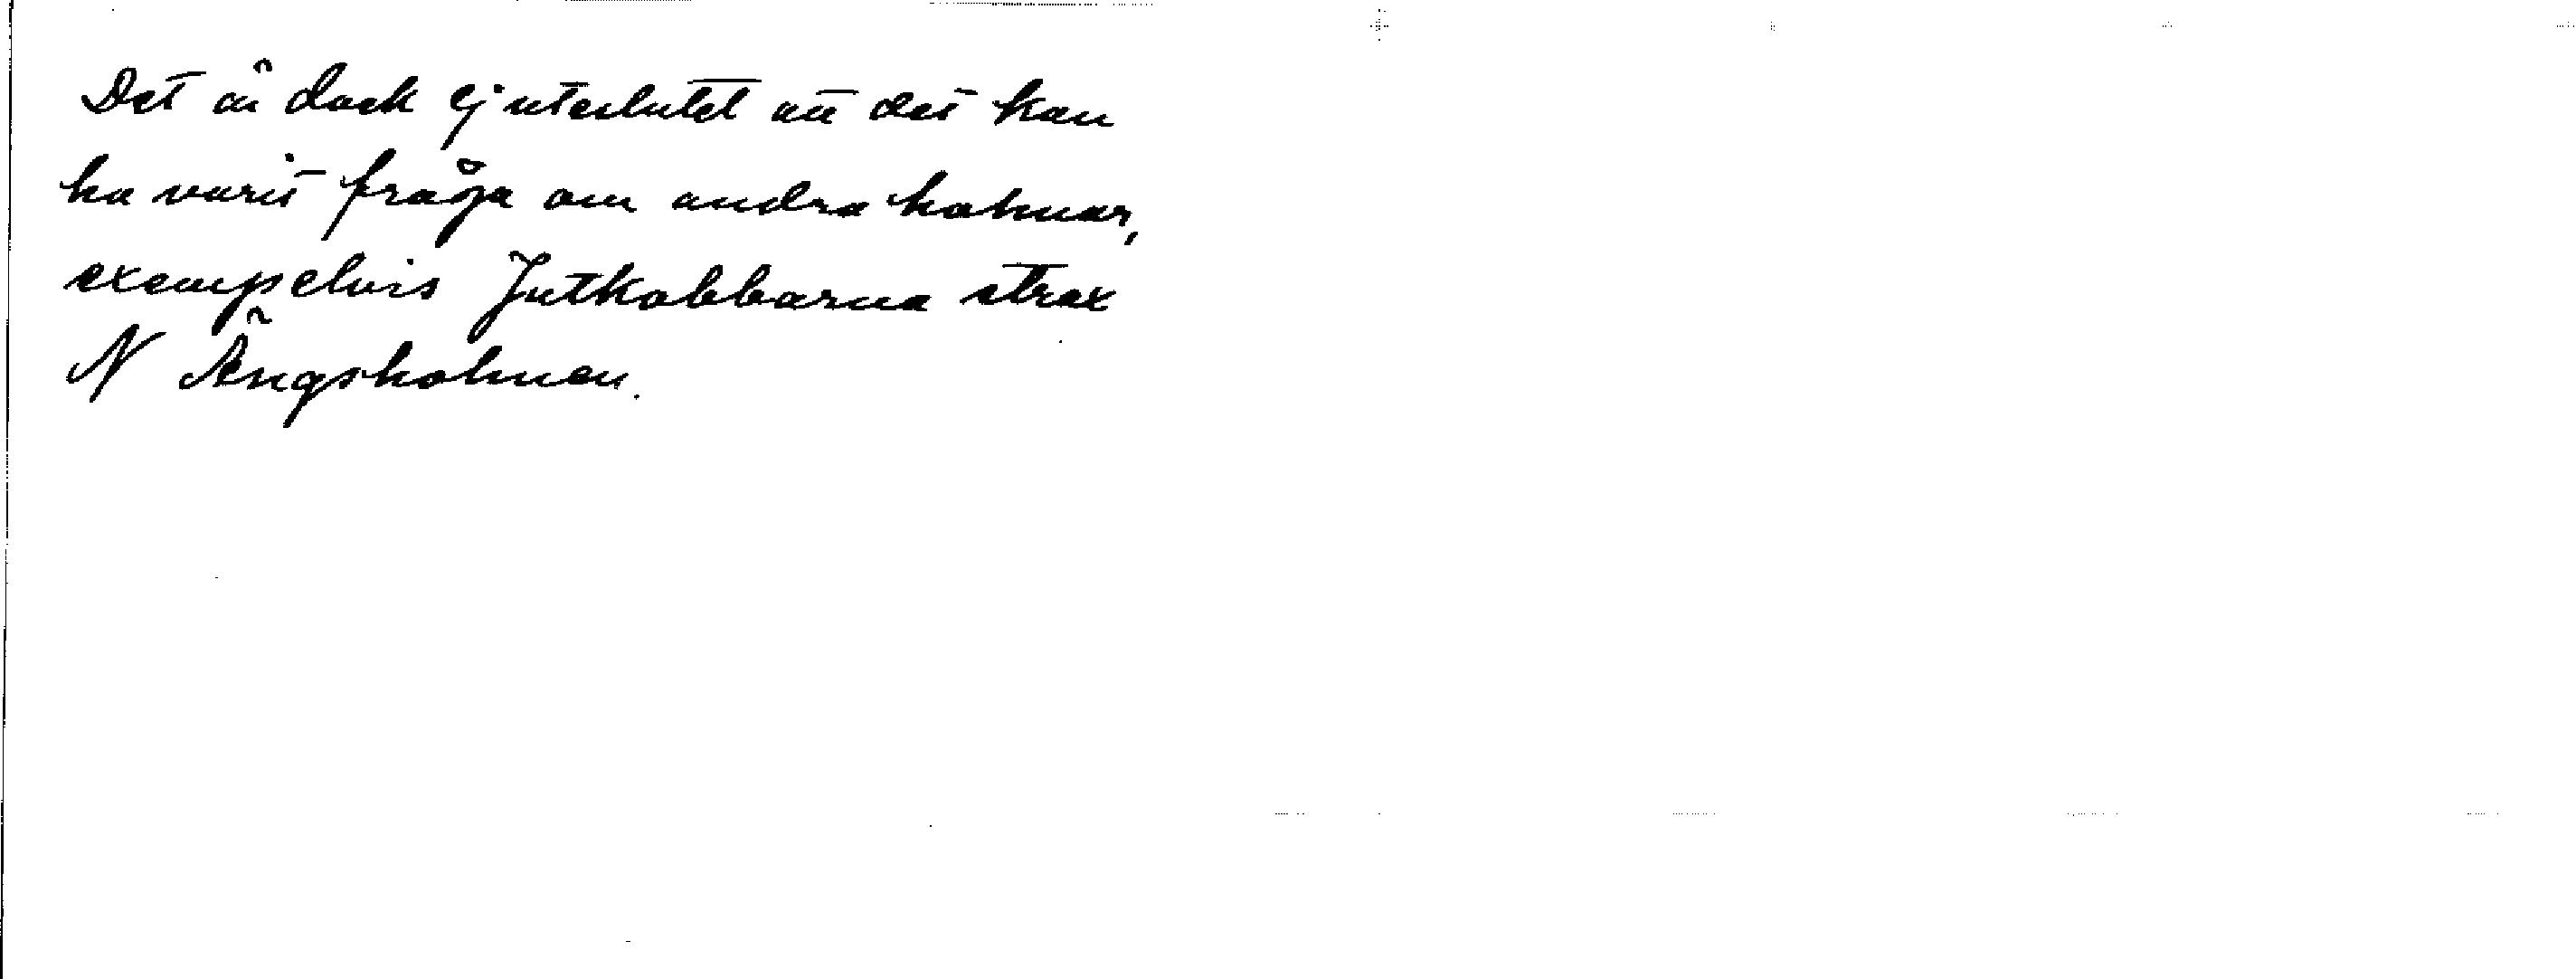 Det är dock ej uteslutet att det kan
ha varit fråga om andra holmar,
exempelvis Jutkobbarna strax
N Ängsholmen.